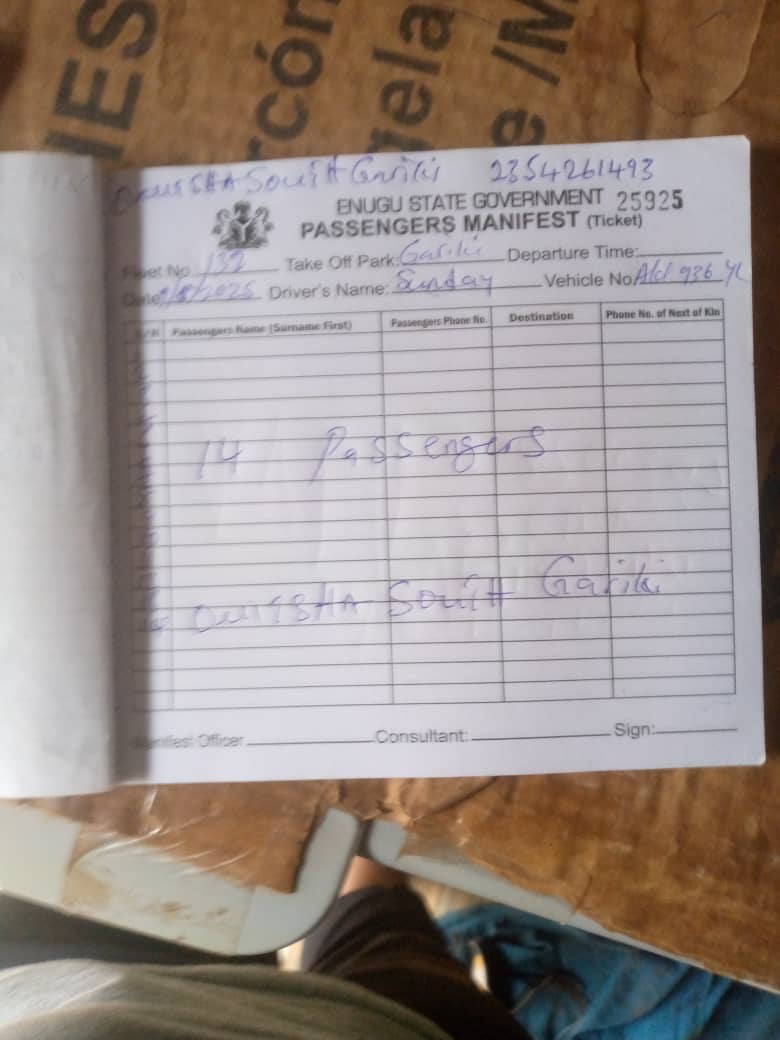 IES
rcón
gela
e /M
SOUTH Gariki 2354261493
ENUGU STATE GOVERNMENT 25925
PASSENGERS MANIFEST (Ticket)
Fleet No 132 Take Off Park: Gariki Departure Time:
Date: /2025 Driver's Name: Sunday Vehicle No. 936
S/N Passengers Name (Surname First) Passengers Phone No. Destination Phone No. of Next of Kin
14 Passengers
ONITSHA SOUTH Gariki
Manifest Officer Consultant: Sign: